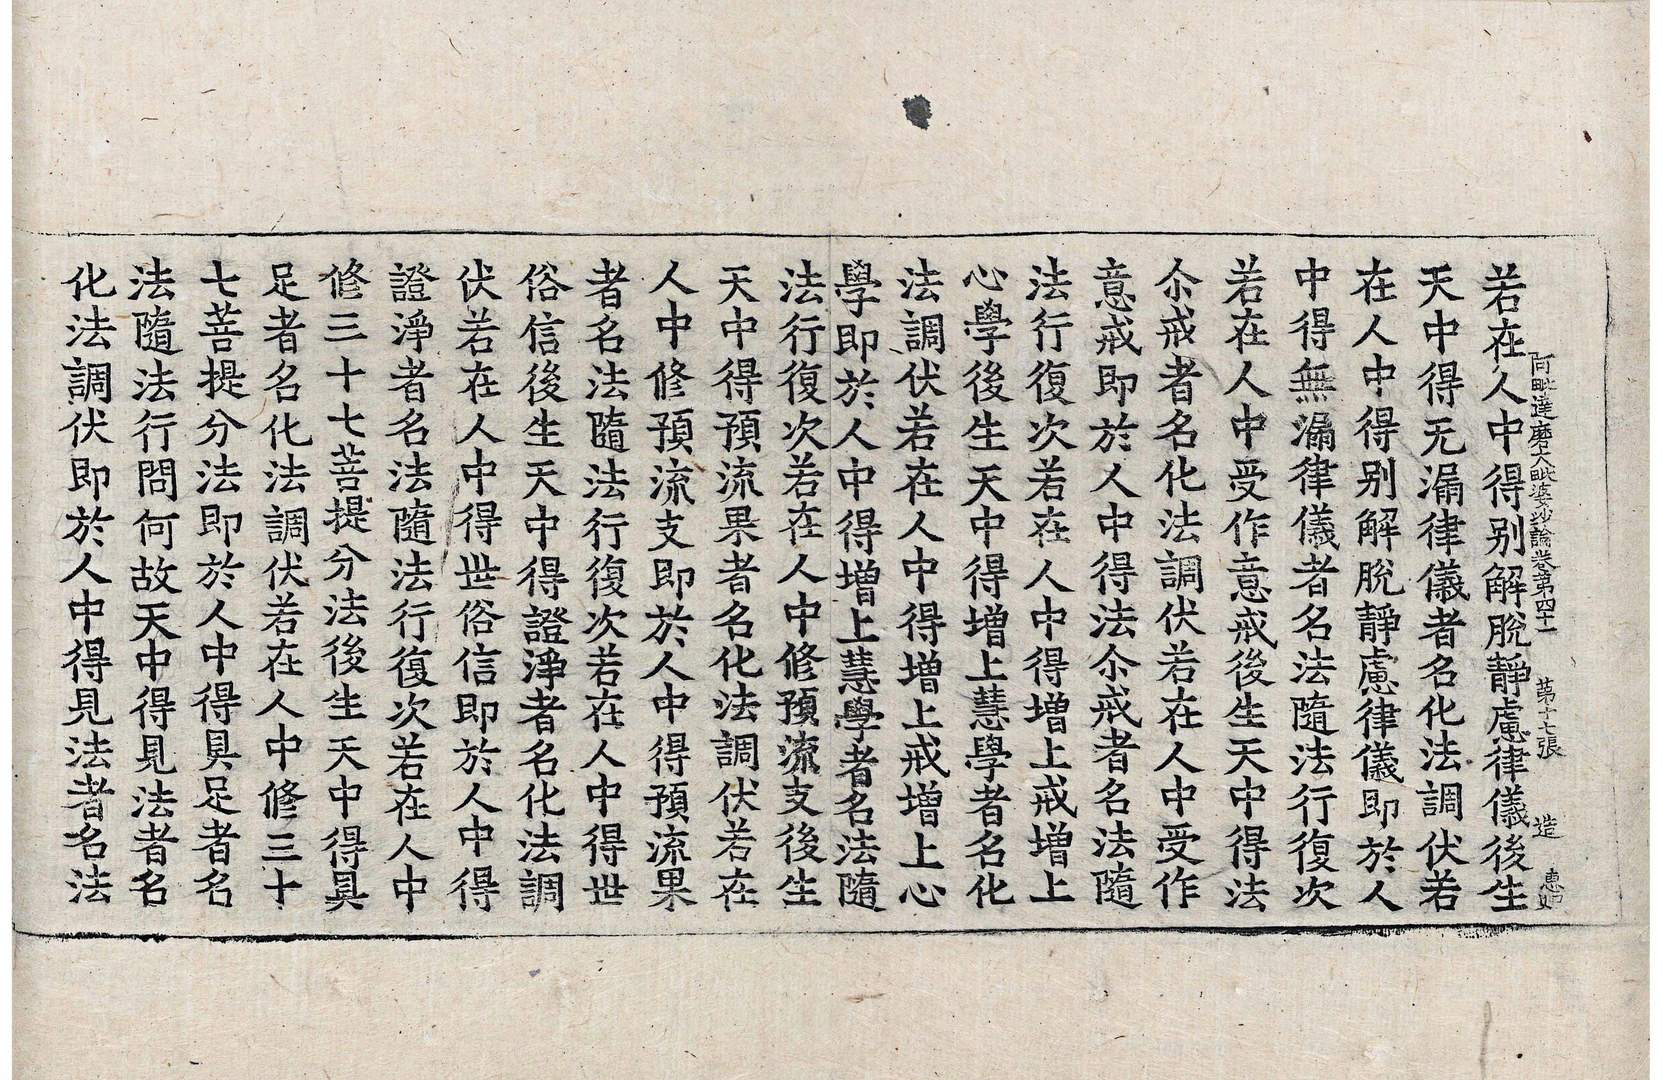 阿毗達磨大毗婆沙論卷第四十一 第十七張 造 惠如
若在人中得別解脫靜慮律儀後生
天中得无漏律儀者名化法調伏若
在人中得別解脫靜慮律儀即於人
中得無漏律儀者名法隨法行復次
若在人中受作意戒後生天中得法
尒戒者名化法調伏若在人中受作
意戒即於人中得法尒戒者名法隨
法行復次若在人中得增上戒增上
心學後生天中得增上慧學者名化
法調伏若在人中得增上戒增上心
學即於人中得增上慧學者名法隨
法行復次若在人中修預流支後生
天中得預流果者名化法調伏若在
人中修預流支即於人中得預流果
者名法隨法行復次若在人中得世
俗信後生天中得證淨者名化法調
伏若在人中得世俗信即於人中得
證淨者名法隨法行復次若在人中
修三十七菩提分法後生天中得具
足者名化法調伏若在人中修三十
七菩提分法即於人中得具足者名
法隨法行問何故天中得見法者名
化法調伏即於人中得見法者名法